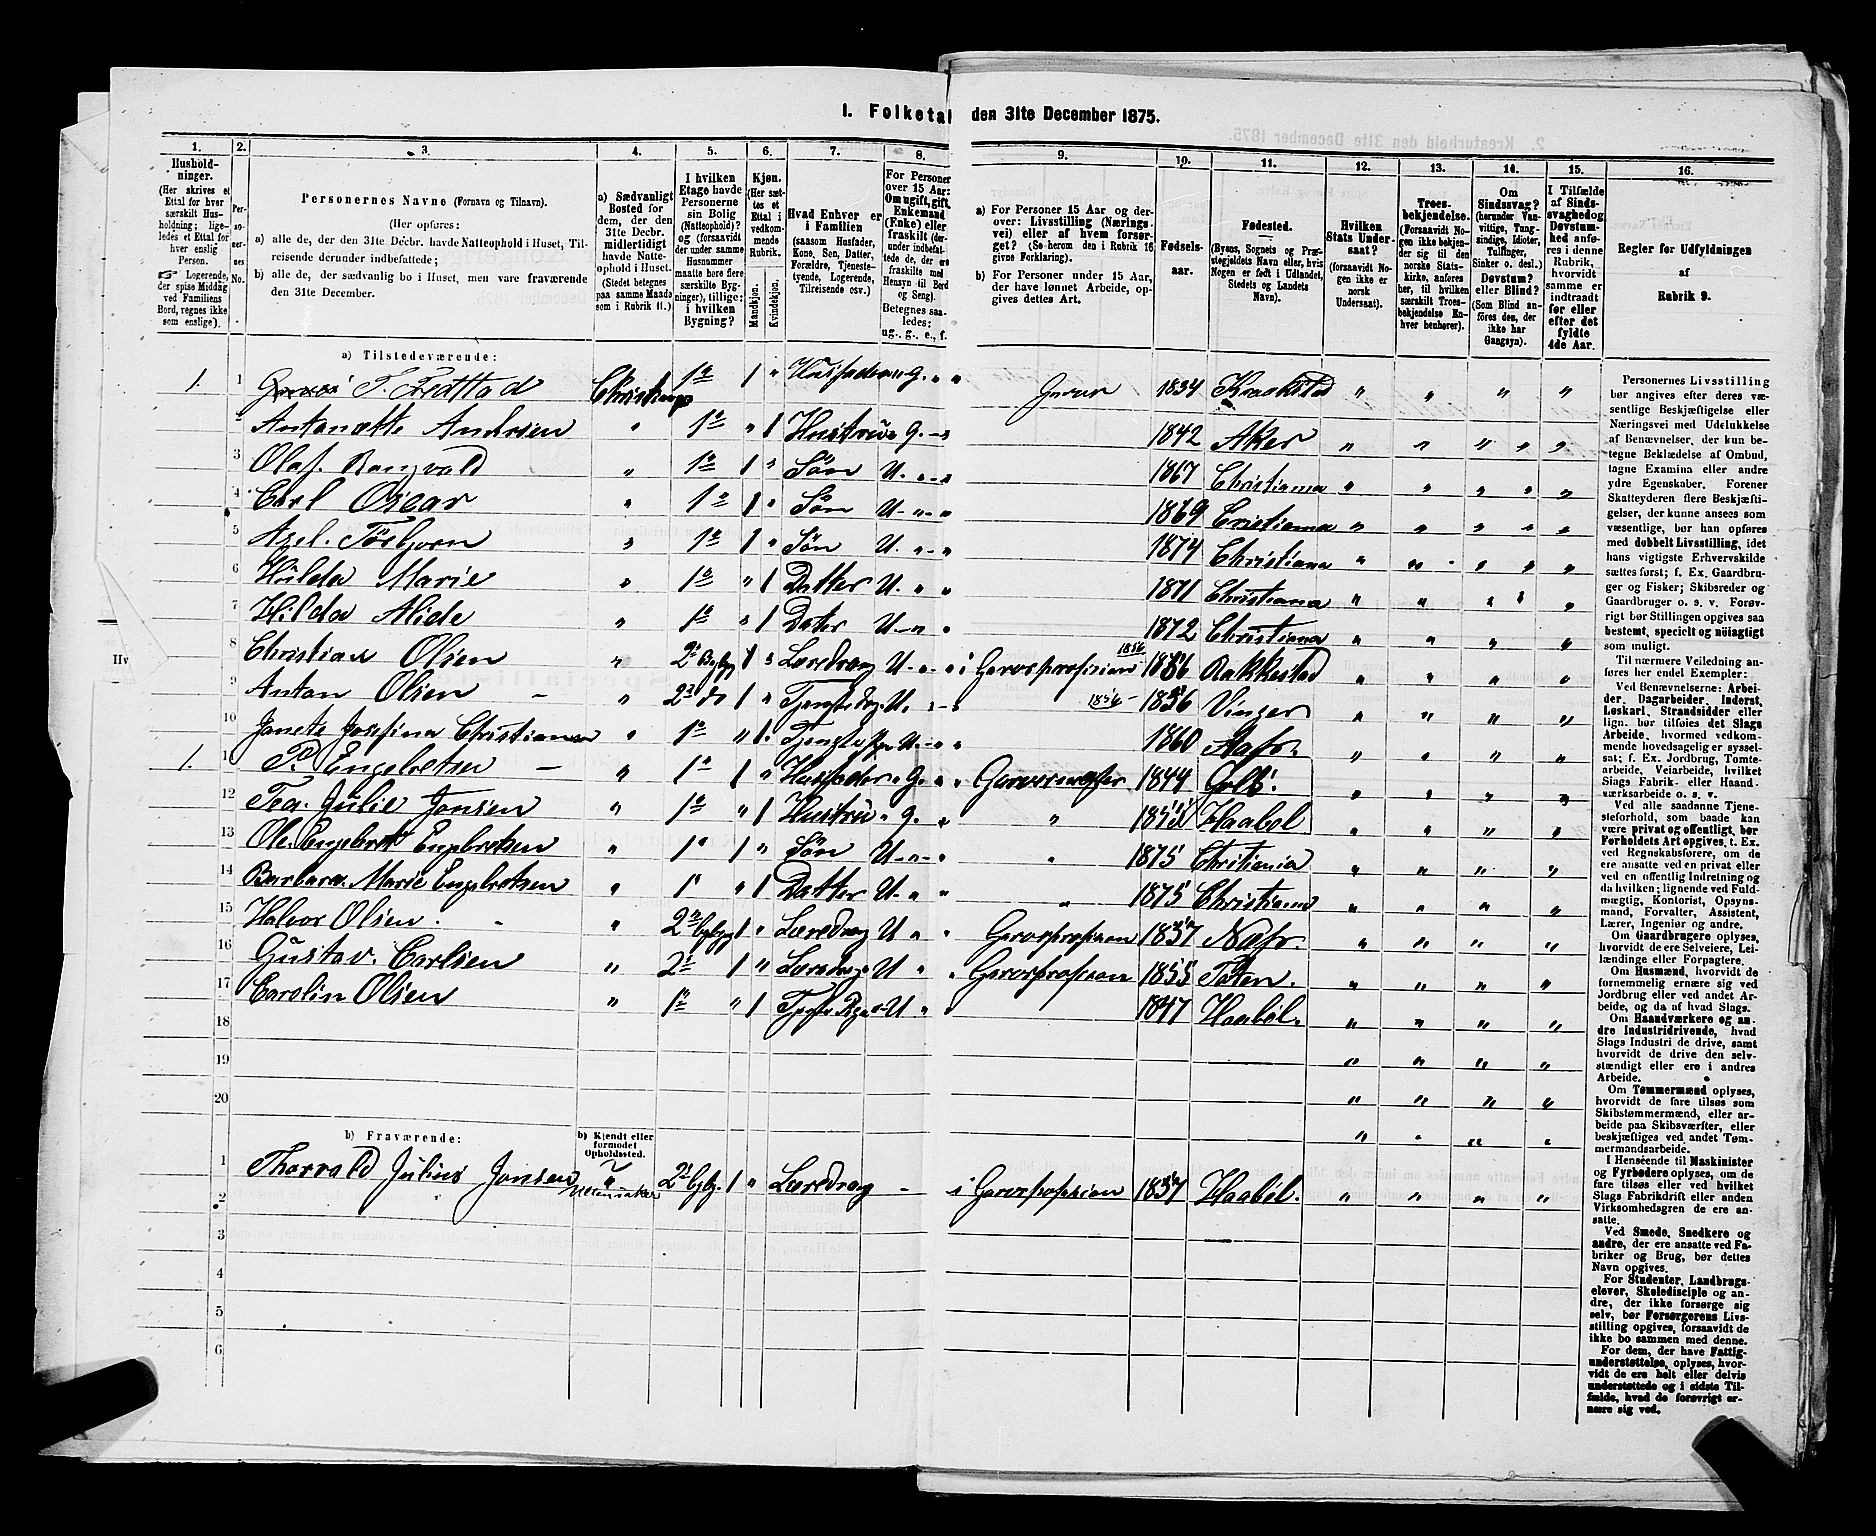 I. Folketal den 31te December 1875.
1.
Husholdninger.
(Her skrives et Ettal for hver særskilt Husholdning; ligeledes et Ettal for hver enslig Person.
☞ Logerende, der spise Middag ved Familiens Bord, regnes ikke som enslige).
2.
Personernes No.
3.
Personernes Navne (Fornavn og Tilnavn).
(Her opføres:
a) alle de, der den 31te Decbr. havde Natteophold i Huset, Tilreisende derunder indbefattede;
b) alle de, der sædvanlig bo i Huset, men vare fraværende den 31te December.
4.
a) Sædvanligt Bosted for dem, der den 31te Decbr. midlertidigt havde Natteophold i Huset.
(Stedet betegnes paa samme Maade som i Rubrik 11.)
5.
I hvilken Etage havde Personerne sin Bolig (Natteophold)? og (forsaavidt der under samme Husnummer maatte høre flere særskilte Bygninger), tillige: i hvilken Bygning?
6.
Kjøn.
(Her sættes et Ettal i vedkommende Rubrik.
Mandkjøn. Kvindekjøn.
7.
Hvad Enhver er i Familien
(saasom Husfader, Kone, Søn, Datter, Forældre, Tjenestetyende, Logerende, Tilreisende osv.)
8.
For Personer over 15 Aar: Om ugift, gift, Enkemand (Enke) eller fraskilt (derunder indbefattede de, der ere fraskilte med Hensyn til Bord og Seng).
Betegnes saaledes: ug., g., e., f.
9.
a) For Personer 15 Aar og derover: Livsstilling (Næringsvei) eller af hvem forsørget? (Se herom den i Rubrik 16 givne Forklaring).
b) For Personer under 15 Aar, der have lønnet Arbeide, opgives dettes Art.
10.
Fødselsaar.
11.
Fødested.
(Byens, Sognets og Præstegjeldets Navn eller, hvis Nogen er født i Udlandet, Stedets og Landets Navn).
12.
Hvilken Stats Undersaat?
(forsaavidt Nogen ikke er norsk Undersaat).
13.
Troesbekjendelse.
(Forsaavidt Nogen ikke bekjender sig til den norske Statskirke, anføres her, til hvilken særskilt Troesbekjendelse Enhver henhører).
14.
Om Sindssvag?
(herunder Vanvittige, Tungsindige, Idioter, Tullinger, Sinker o. desl.)
Døvstum? eller Blind?
(Som Blind anføres den, der ikke har Gangsyn).
15.
I Tilfælde af Sindssvaghed og Døvstumhed anføres i denne Rubrik, hvorvidt samme er indtraadt før eller efter det fyldte 4de Aar.
16.
Regler for Udfyldningen af Rubrik 9.
a) Tilstedeværende:
1. 1 T. Fredstad Christiania 1ste 1 " Husfader G. " " 1834 Kraakstad " " " "
2 Antonette Andrsen " 1ste " 1 Hustru G. 1842 Aker " " " "
3 Olaf Rangvald " 1ste 1 " Søn U. 1867 Christiania " " " "
4 Carl Oscar " 1ste 1 " Søn U. 1869 Cristiania " " " "
5 Axel Torbjorn " 1ste 1 " Søn U. 1874 Christiania " " " "
6 Hulda Marie " 1ste " 1 Datter U. 1871 Christiana " " " "
7 Hilda Alide " 1ste " 1 Dater U. 1872 Christiana " " " "
8 Christian Olsen " 2 Bygg 1 Læredreng U. i Garverprofesion 1856 1856 Rakkestad " " " "
9 Anton Olsen " 2 do 1 " U. 1856 1856 Vinger " " " "
10 Janete Josefina Christiansen " 1ste " 1 U. 1860 " " " "
1. 11 P. Engebretsen " 1ste 1 " Husfader G. Garvermester 1844 " " " "
12 Tea Julie Jonsen " 1ste " 1 Hustru G. " Haabøl " " " "
13 Ole Engebret Engbretsen " 1 1 " Søn U. " 1875 Christiania " " " "
14 Barbara Marie Engebretsen " 1 " 1 Datter U. " 1875 Christiania " " " "
15 Halvor Olsen " 2 bygg 1 " Læredreng U Garverprofesion 1857 " " " "
16 Gustav Carlsen " 2 1 " Læredreng U Garverprofesion 1855 Toten. " " " "
17 Carolin Olsen " 1ste " 1 U 1847 Haabøl. " " " "
18 " " " "
19 " " " "
20 " " " "
b) Fraværende:
b) Kjendt eller formodet Opholdssted.
1 Thorvald Julius Jonsen 2 bygg. 1 " Læredreng i Garverprofesion 1857 Haabøl. " " " "
2
3
4
5
6
Personernes Livsstilling bør angives efter deres væsentlige Beskjæftigelse eller Næringsvei med Udelukkelse af Benævnelser, der kun betegne Beklædelse af Ombud, tagne Examina eller andre ydre Egenskaber. Forener Skatteyderen flere Beskjæftigelser, der kunne ansees som væsentlige, bør han opføres med dobbelt Livsstilling, idet hans vigtigste Erhvervskilde sættes først; f. Ex. Gaardbruger og Fisker; Skibsreder og Gaardbruger o. s. v. Forøvrigt bør Stillingen opgives saa bestemt, specielt og nøiagtigt som muligt.
Til nærmere Veiledning anføres her endel Exempler:
Ved Benævnelserne: Arbeider, Dagarbeider, Inderst, Løskarl, Strandsidder eller lign. bør tilføies det Slags Arbeide, hvormed vedkommende hovedsagelig er sysselsat; f. Ex. Jordbrug, Tomtearbeide, Veiarbeide, hvilket Slags Fabrik- eller Haandværksarbeide o. s. v.
Ved alle saadanne Tjenesteforhold, som baade kan være privat og offentligt, bør Forholdets Art opgives, t. Ex. ved Regnskabsførere, om de ere ansatte ved en privat eller ved en offentlig Indretning og da hvilken; lignende ved Fuldmægtig, Kontorist, Opsynsmand, Forvalter, Assistent, Lærer, Ingeniør og andre.
Om Gaardbrugere oplyses, hvorvidt de ere Selveiere, Leilændinge eller Forpagtere.
Om Husmænd, hvorvidt de fornemmelig ernære sig ved Jordbrug eller ved andet Arbeide, og da af hvad Slags.
Om Haandværkere og andre Industridrivende, hvad Slags Industri de drive, samt hvorvidt de drive den selvstændigt eller ere i andres Arbeide.
Om Tømmermænd oplyses, hvorvidt de fare tilsøs som Skibstømmermænd, eller arbeide paa Skibsværfter, eller beskjæftiges ved andet Tømmermandsarbeide.
I Henseende til Maskinister og Fyrbødere oplyses, om de fare tilsøs eller ved hvilket Slags Fabrikdrift eller anden Virksomhedsgren de ere ansatte.
Ved Smede, Snedkere og andre, der ere ansatte ved Fabriker og Brug, bør dettes Navn opgives.
For Studenter, Landbrugselever, Skoledisciple og andre, der ikke forsørge sig selv, bør Forsørgerens Livsstilling opgives, forsaavidt de ikke bo sammen med denne.
For dem, der have Fattigunderstøttelse, oplyses, hvorvidt de ere helt eller delvis understøttede og i sidste Tilfælde, hvad de forøvrigt ernære sig ved.